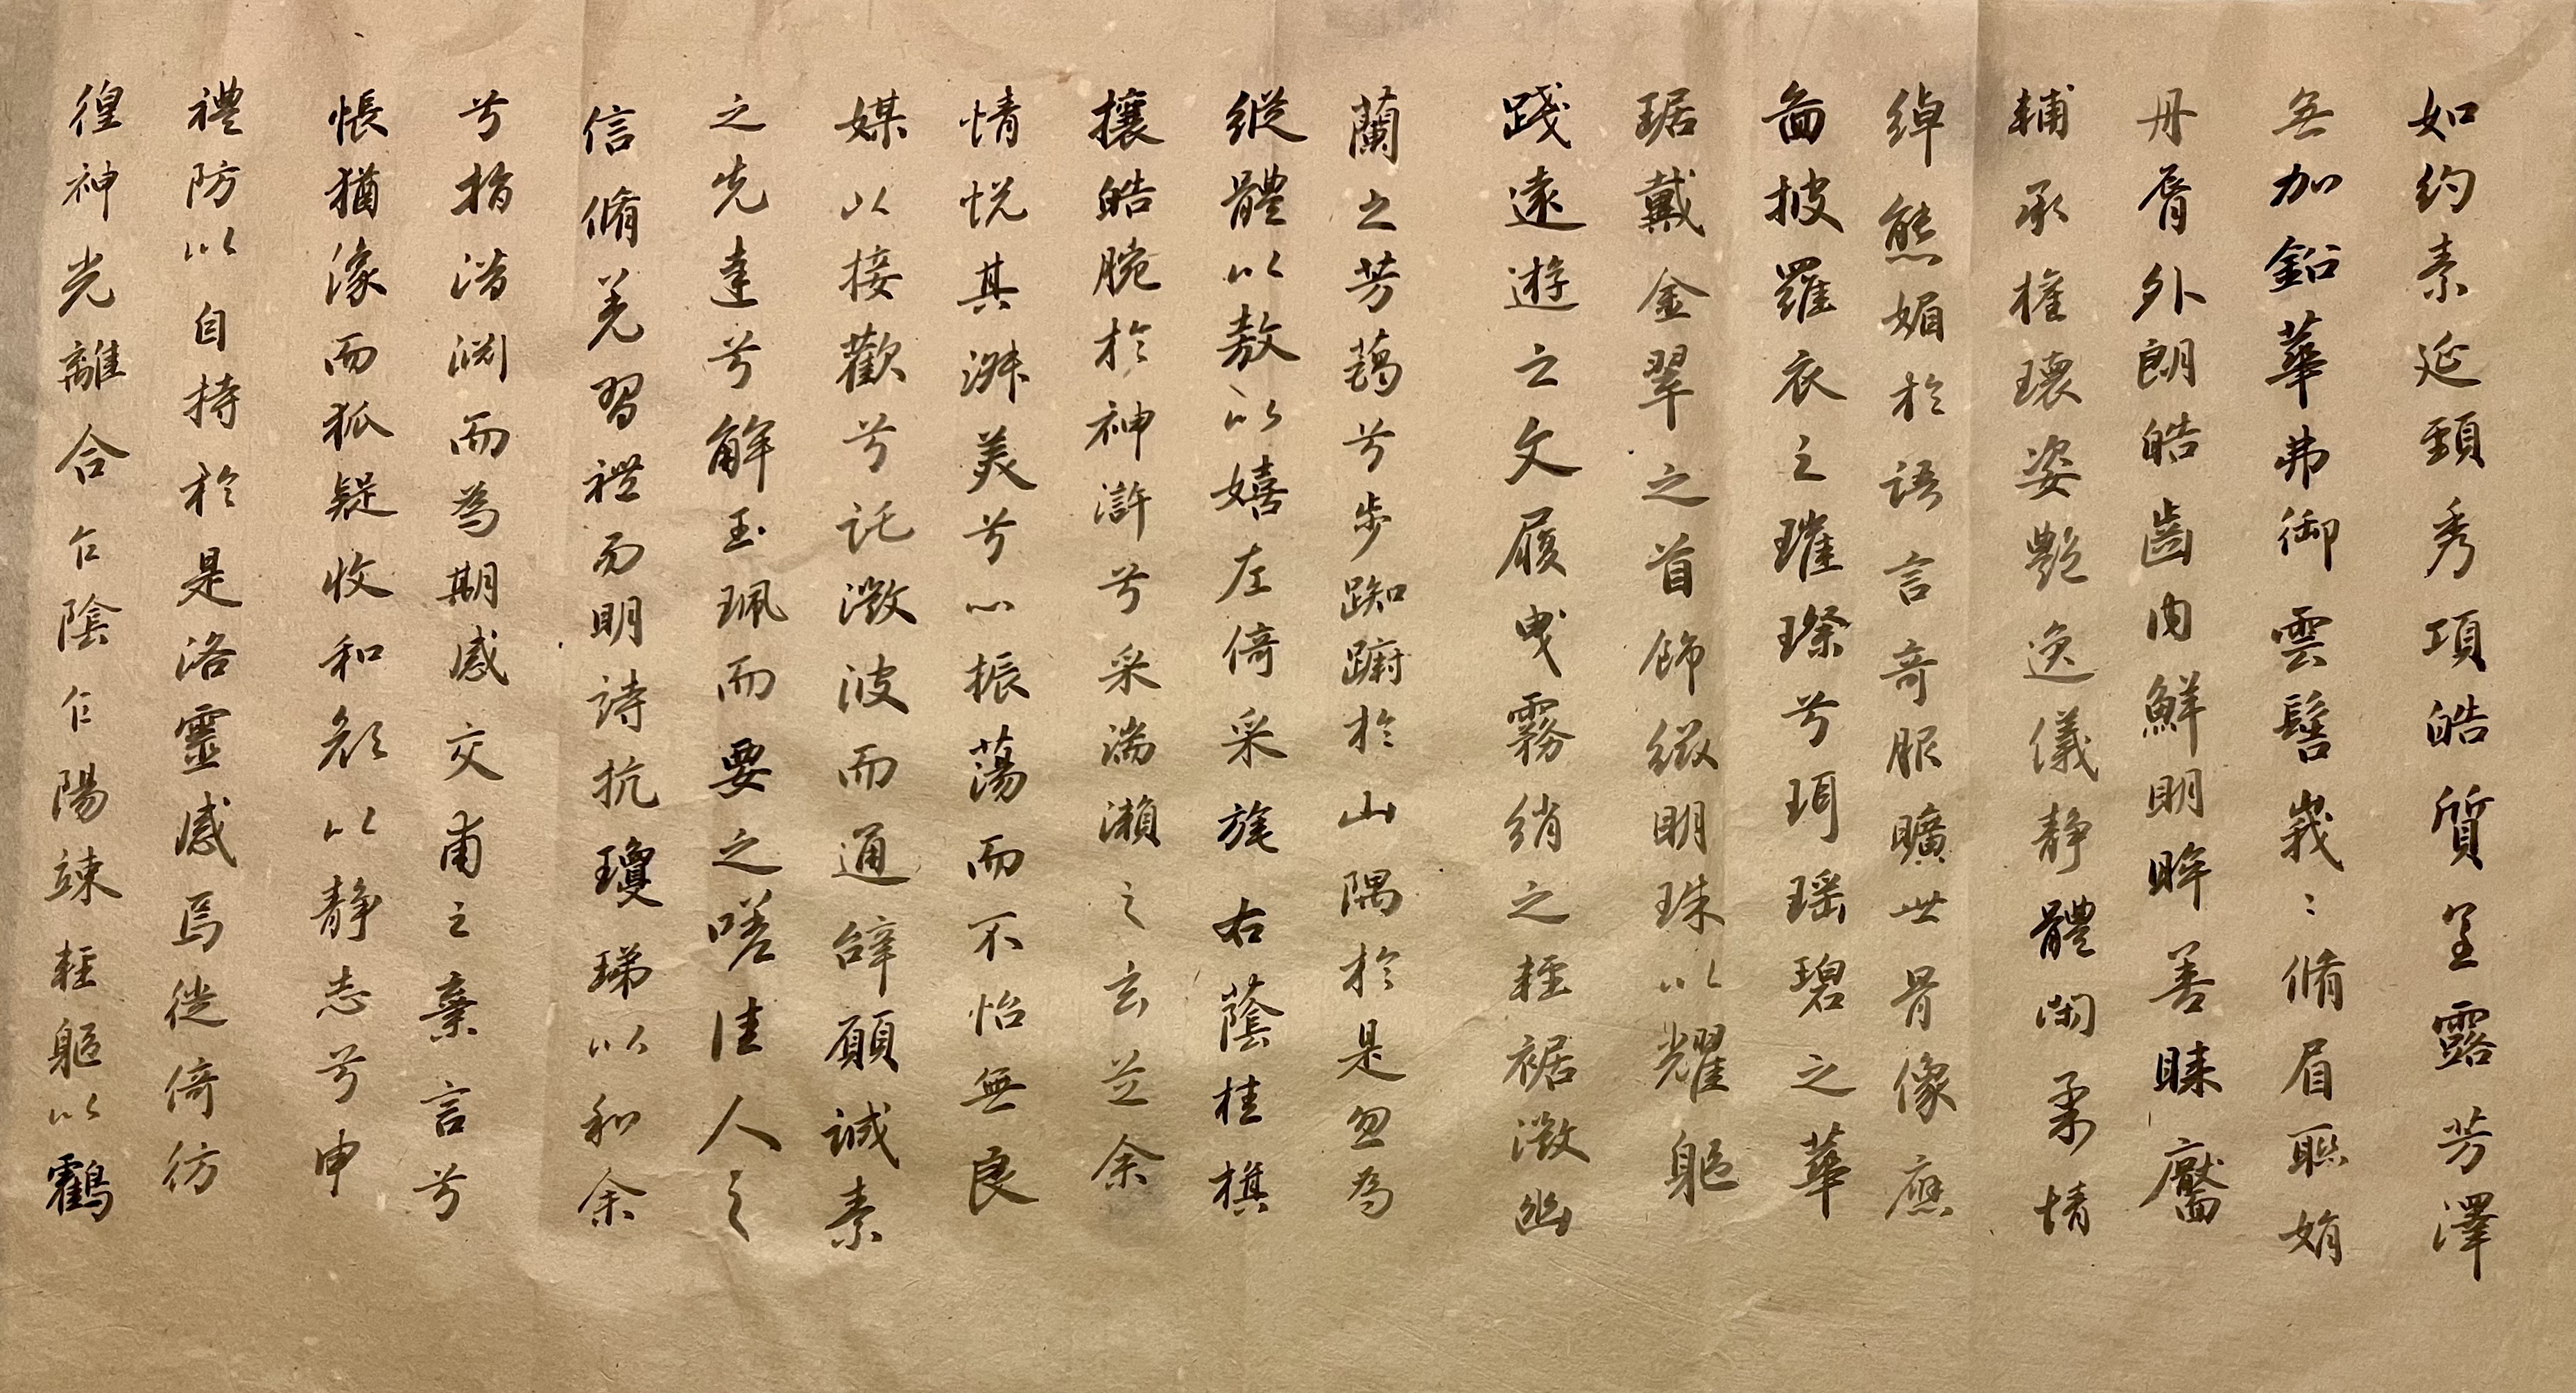 如約素延頸秀項皓質呈露芳澤
無加鉛華弗御雲髻峩〻脩眉聯娟
丹脣外朗皓齒内鮮明眸善睞靨
輔承權瓌姿艷逸儀静體閑柔情
綽態媚於語言奇服曠世骨像應
啚披羅衣之璀璨兮珥瑶碧之華
琚戴金翠之首飾綴明珠以耀軀
踐遠遊之文履曳霧綃之輕裾微幽
蘭之芳藹兮步踟躕於山隅於是忽焉
縱體以敖以嬉左倚采旄右蔭桂旗
攘皓腕於神滸兮采湍瀨之玄芝余
情悦其淑美兮心振蕩而不怡無良
媒以接歡兮託微波而通辭願誠素
之先達兮解玉珮而要之嗟佳人之
信脩羌習禮而明詩抗瓊珶以和余
兮指潛淵而為期感交甫之棄言兮
悵猶豫而狐疑收和顔以静志兮申
禮防以自持於是洛靈感焉徙倚彷
徨神光離合乍陰乍陽竦輕軀以鶴